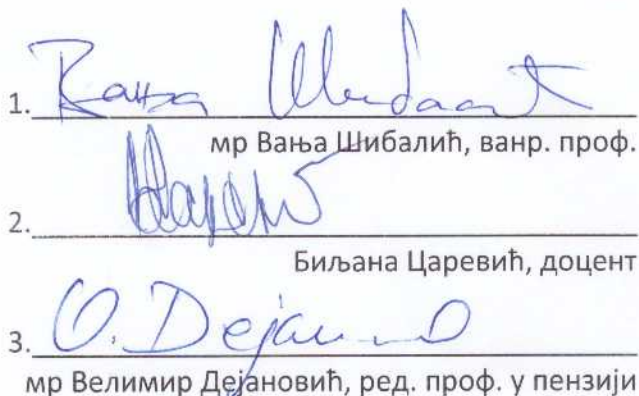 1. Вања Шибалић
мр Вања Шибалић, ванр. проф.
2.
Биљана Царевић, доцент
3.
мр Велимир Дејановић, ред. проф. у пензији